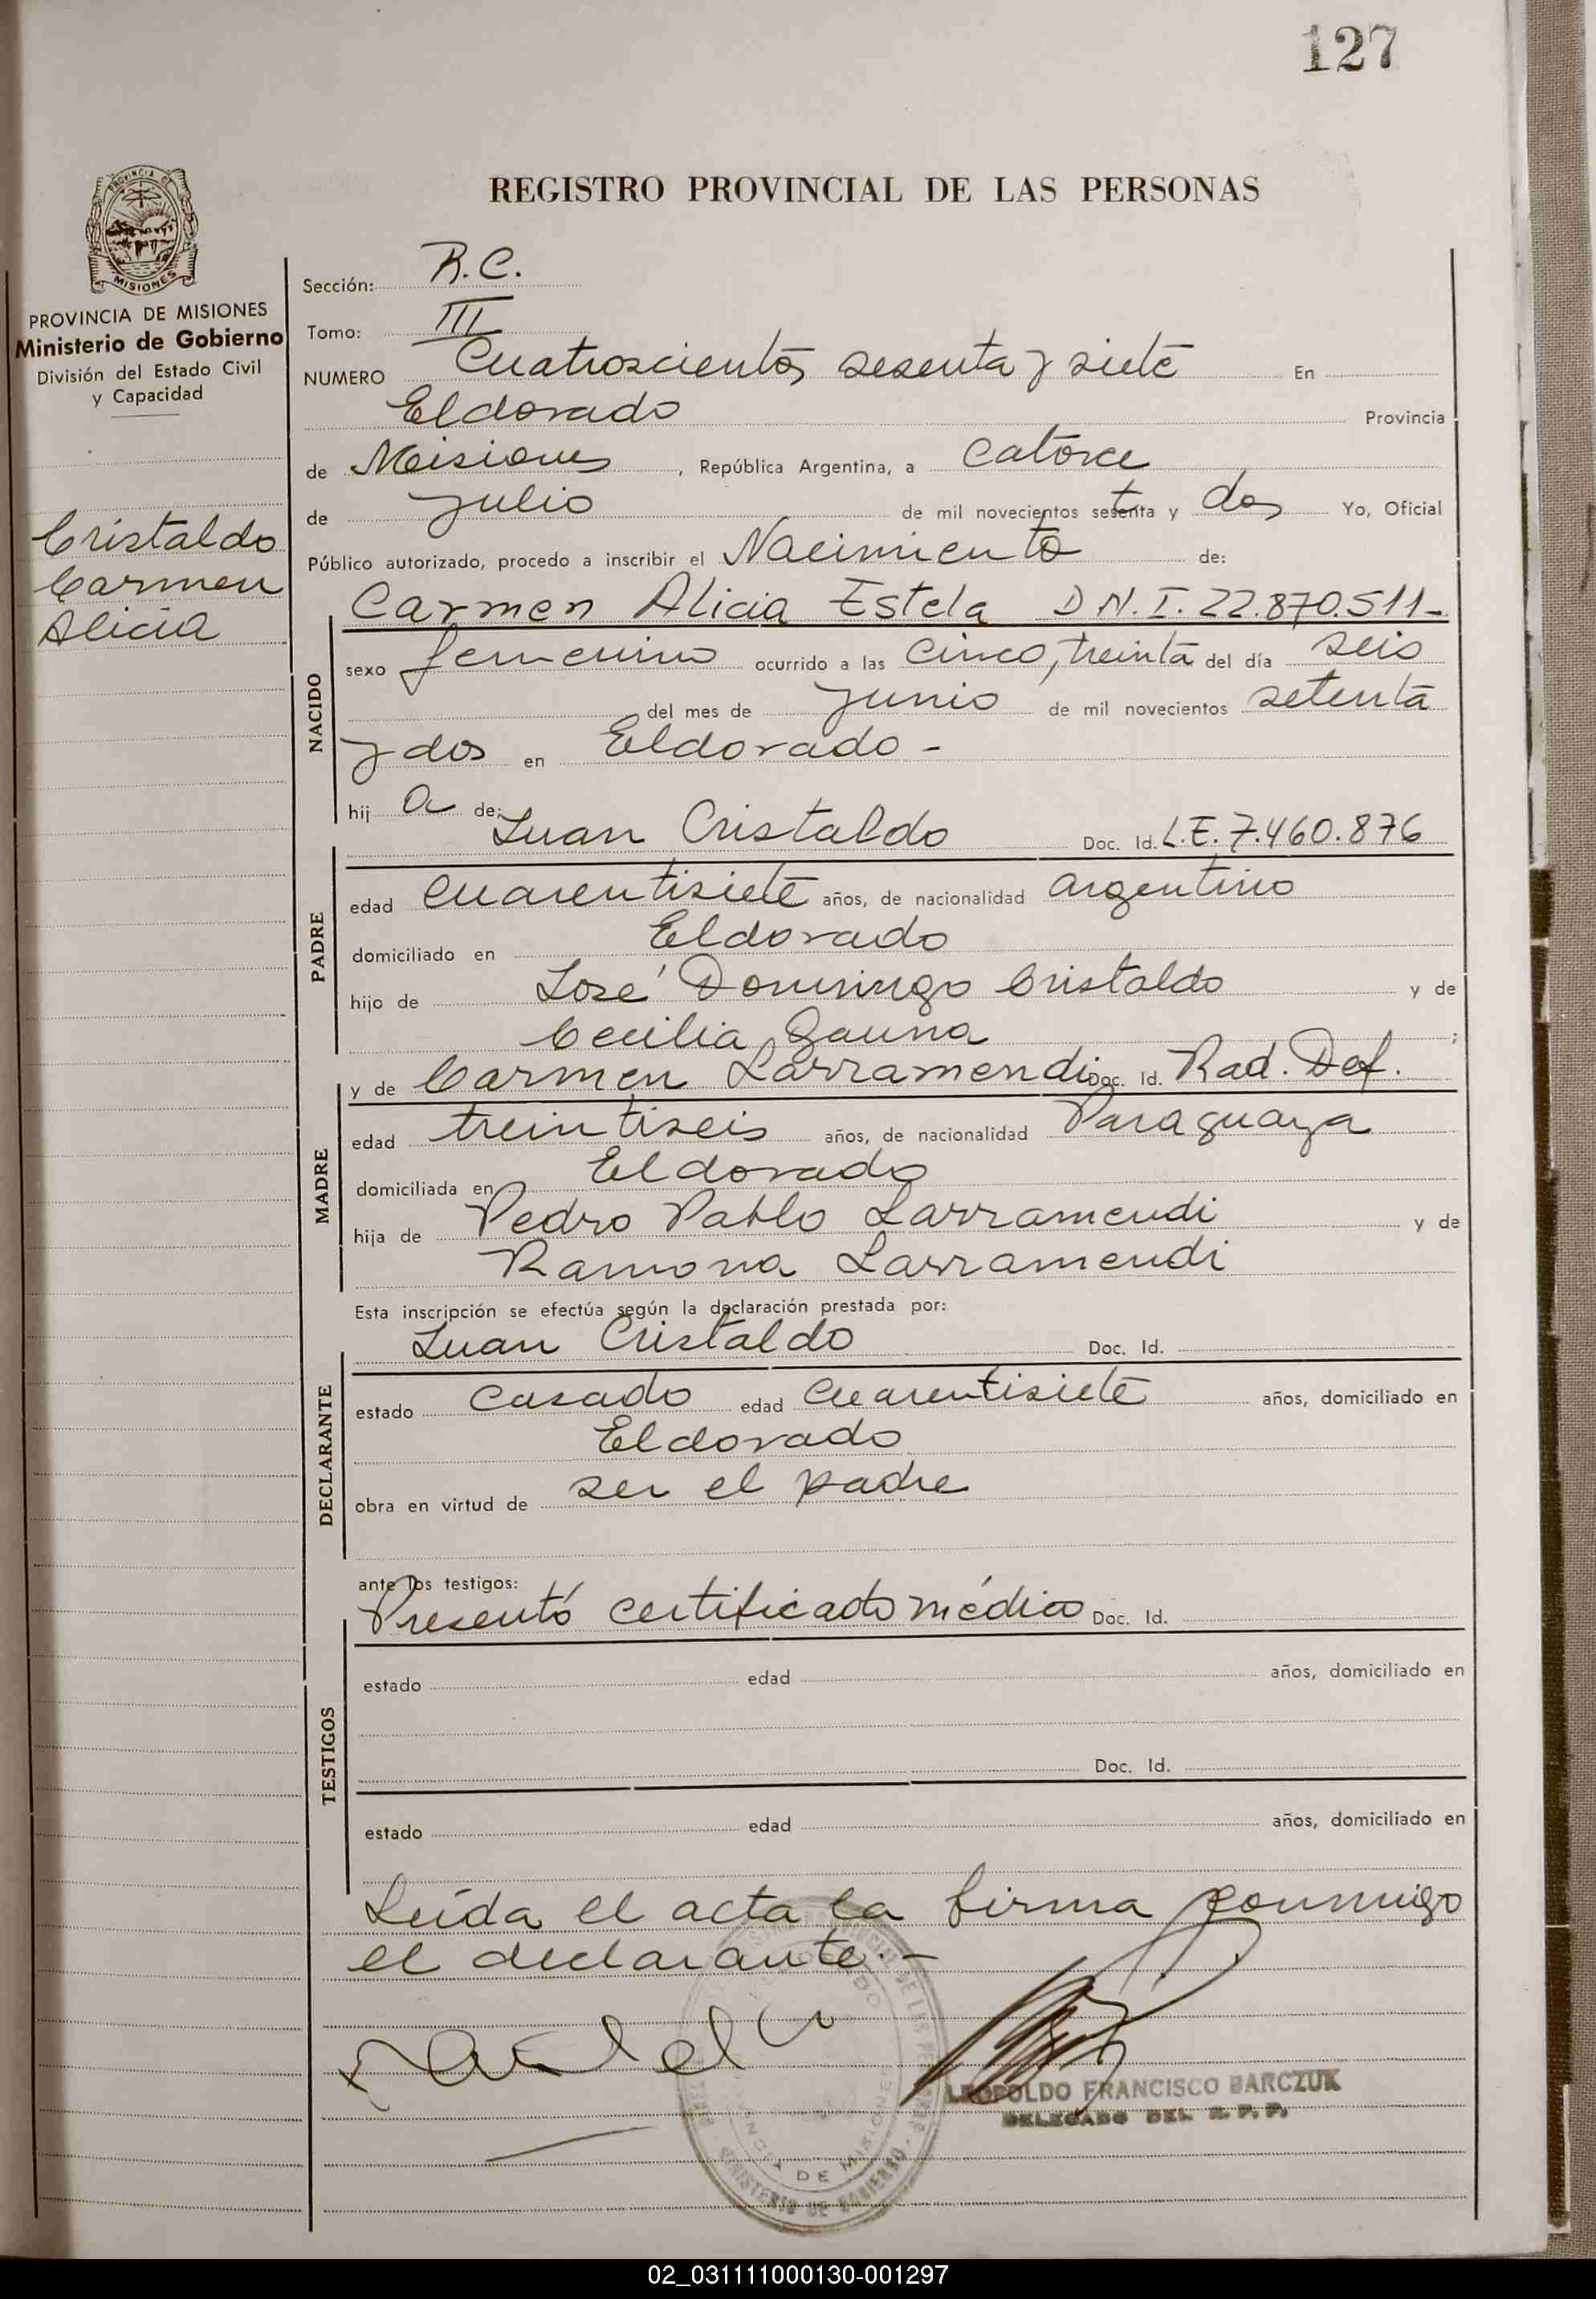 127
PROVINCIA DE
MISIONES
PROVINCIA DE MISIONES
Ministerio de Gobierno
División del Estado Civil
y Capacidad
Cristaldo
Carmen
Alicia
REGISTRO PROVINCIAL DE LAS PERSONAS
Sección: R.C.
Tomo: III
NUMERO Cuatroscientos sesenta y siete En
Eldorado Provincia
de Misiones, República Argentina, a catorce
de julio de mil novecientos setenta y dos Yo, Oficial
Público autorizado, procedo a inscribir el Nacimiento de:
Carmen Alicia Estela D.N.I. 22.870.511-
NACIDO
sexo femenino ocurrido a las cinco, treinta del día seis
del mes de junio de mil novecientos setenta
y dos en Eldorado -
hij a de:
Juan Cristaldo Doc. Id. L.E. 7.460.876
PADRE
edad cuarentisiete años, de nacionalidad argentino
domiciliado en Eldorado
hijo de José Domingo Cristaldo y de
Cecilia Gauna ;
y de Carmen Larramendi Doc. Id. Rad. Def.
MADRE
edad treintiseis años, de nacionalidad Paraguaya
domiciliada en Eldorado
hija de Pedro Pablo Larramendi y de
Ramona Larramendi
Esta inscripción se efectúa según la declaración prestada por:
Juan Cristaldo Doc. Id.
DECLARANTE
estado casado edad cuarentisiete años, domiciliado en
Eldorado
obra en virtud de ser el padre
ante los testigos:
Presentó certificado médico Doc. Id.
TESTIGOS
estado edad años, domiciliado en
Doc. Id.
estado edad años, domiciliado en
Leída el acta la firma conmigo
el declarante.-
LEOPOLDO FRANCISCO BARCZUK
DELEGADO DEL R. P. P.
MINISTERIO DE GOBIERNO
DE MISIONES
02_031111000130-001297